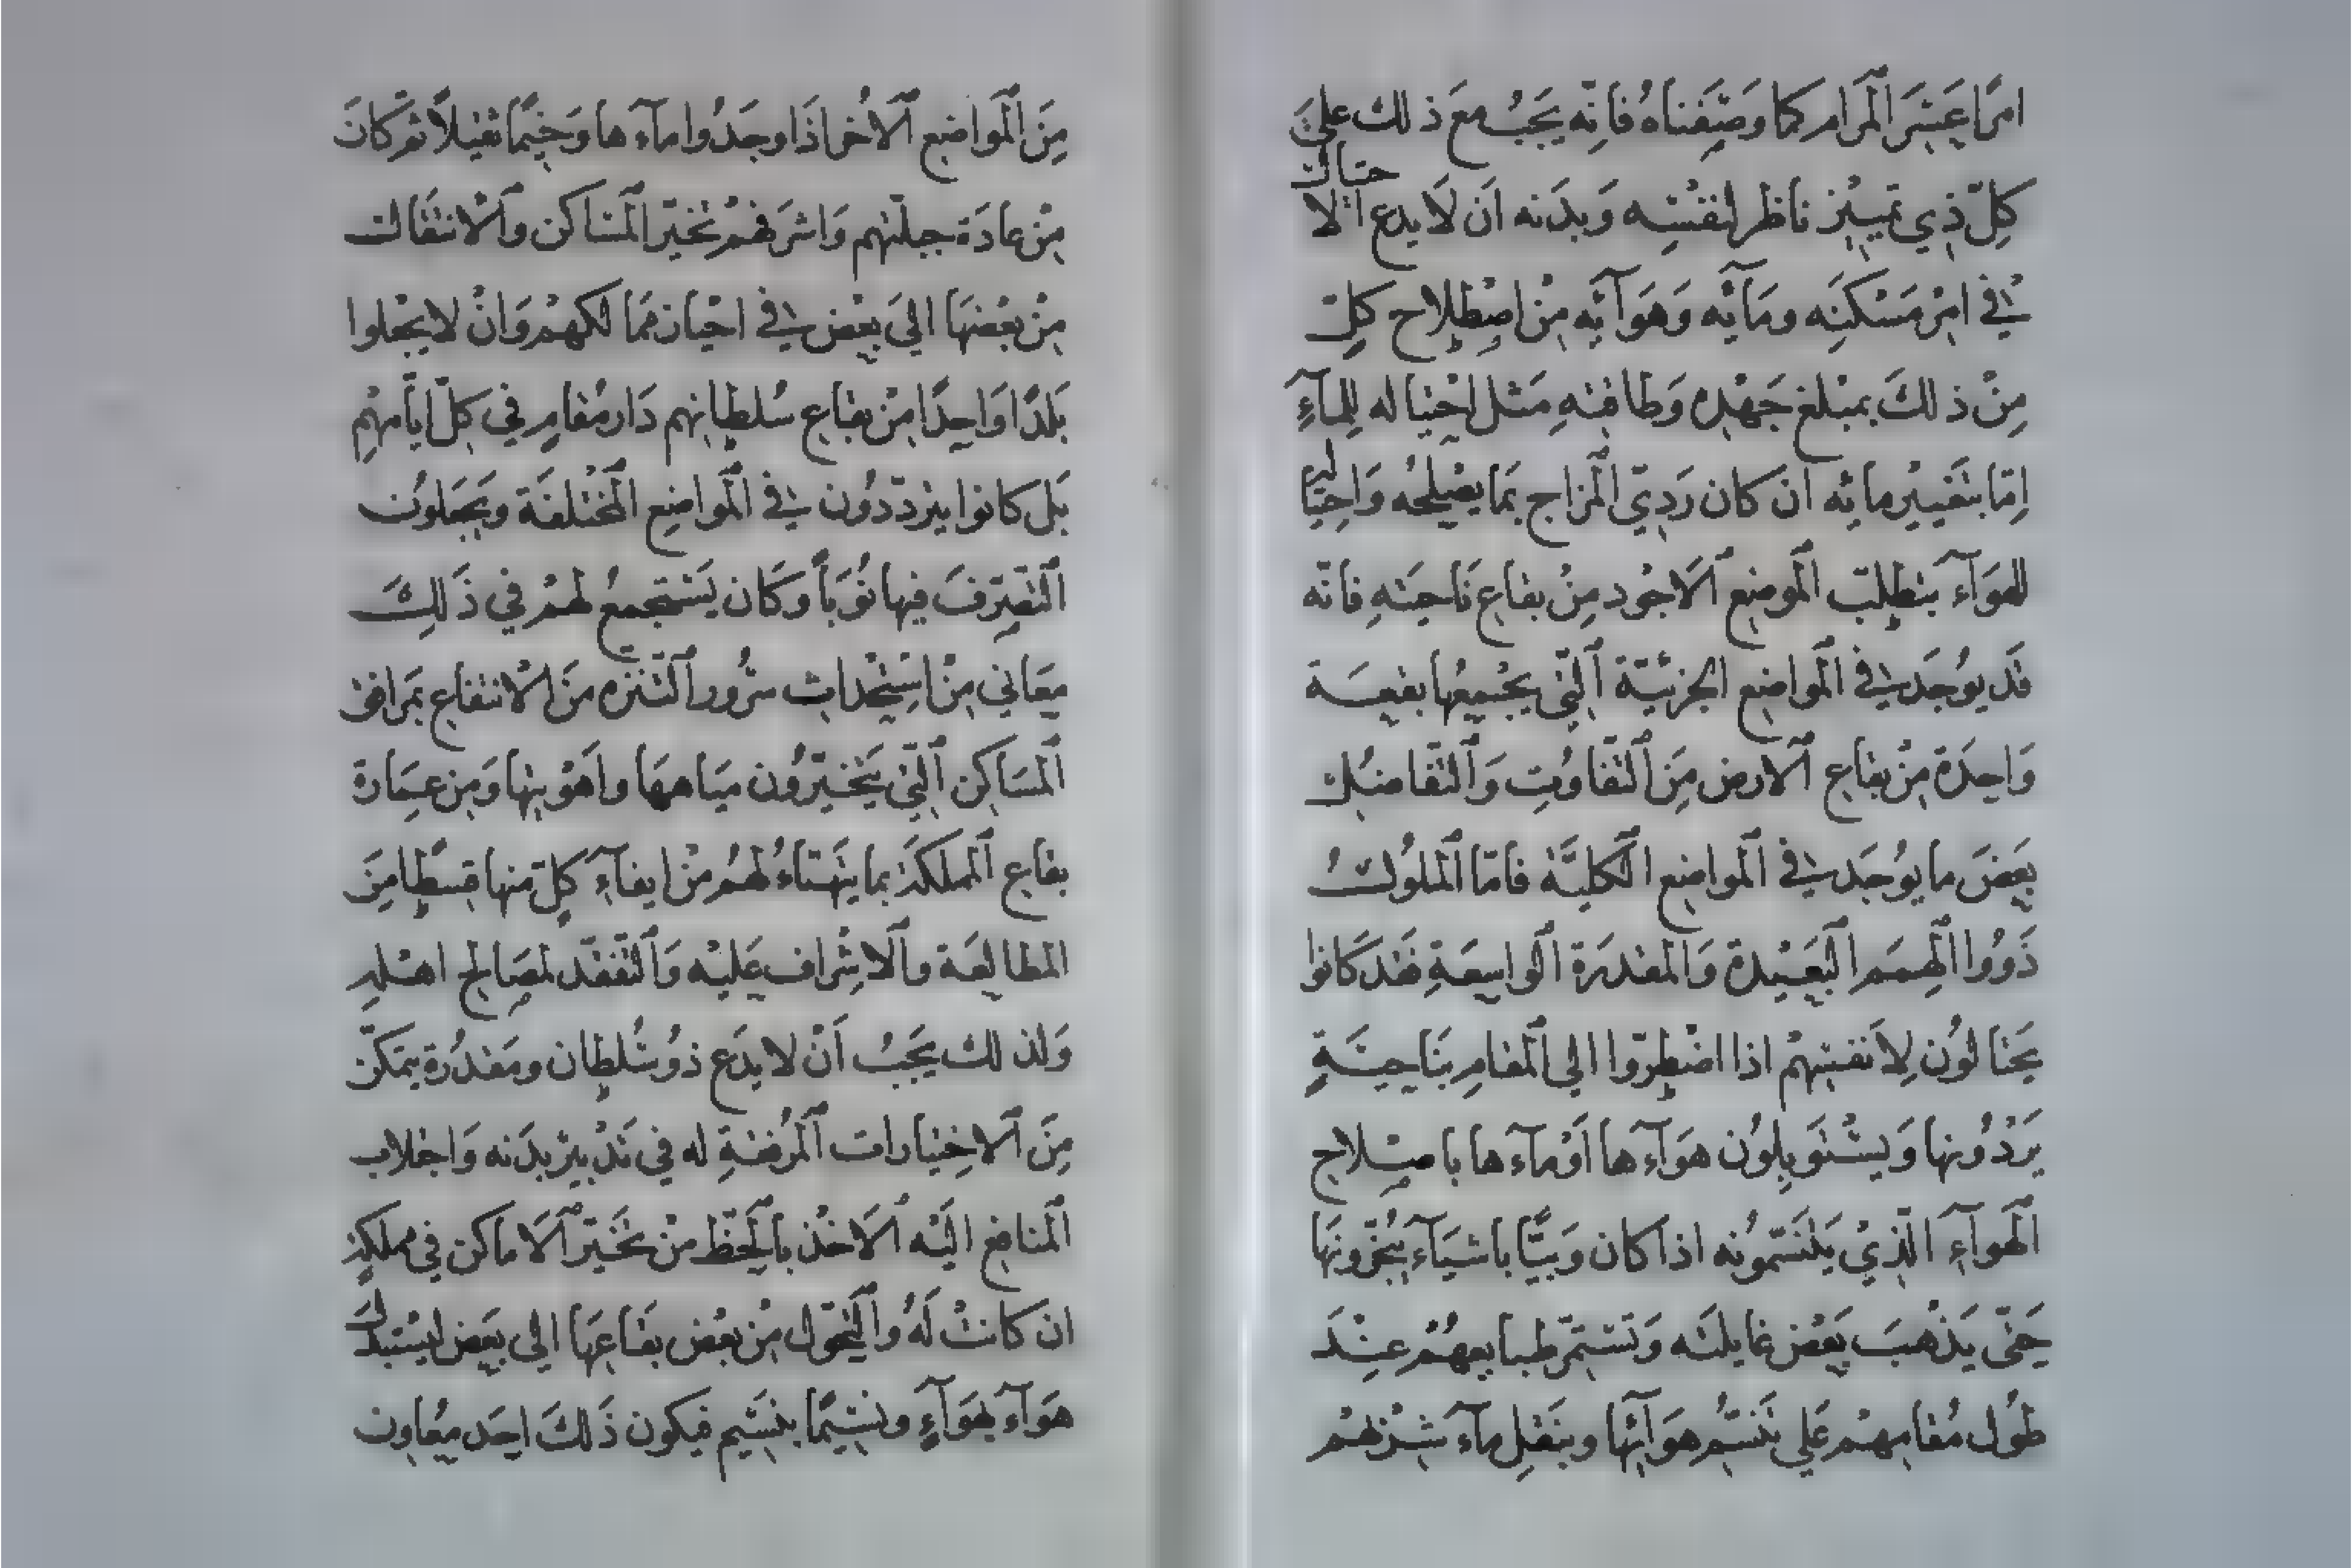 امرًا عَسِرَ المَرام كما وَصَفناهُ فانّه يَجبُ معَ ذلك علىَ
كلّ ذي تمييز ناظر لنفسِه وَبدَنه انَ لَا يدع الاحتيال
في امْر مَسْكنِه ومَائِه وَهَوَآئِه مِنْ اصْطِلاح كلّ
مِنْ ذلكَ بمبْلغ جَهْدِه وَطاقتِهِ مَثل احْتيالِه للِمآءِ
اِمّا بتَغَييْر مائِه انْ كان رَديّ المزاج بمَا يصْلِحُه وَاحِتيَاله
للهوَآء بتَطلبّ الموضع الَاجْود مِنْ بقاع نَاحيَتهِ فانّه
قَد يوُجَد في المَواضع الجزئيّة الّتي يجْمعُها بقعَة
وَاحِدَة مِنْ بقاع الارض مِنَ التّفاوُتِ وَالتّفاضُل
بَعضَ ما يوُجَد في المواضع الكليَّة فامّا المُلوُكُ
ذَوُوا الهِمَم البَعيْدة وَالمقدرَة الواسِعَةِ فقد كَانوا
يَحْتالوُن لِانفسِهمْ اذا اضْطرّوا الي المُقامِ بنَاحِيَةٍ
يَرْدُونها وَيسْتَوَبِلوُن هَوَآءَها اَوْمآءَها باصْلاح
الهَوآءِ الّذِيْ يَتنَسّموُنه اذا كان وَبيًّا باشيَآء يُبخّرونهَا
حَتّى يَذْهبَ بَعْض غايلتَه وَتستمرّ طبايعهُمْ عِنْدَ
طوُل مُقامِهمْ عَلى تنَسّمُ هوَآئِها وبنَقلِ مآء شرْبْهمْ
مِنَ المَواضِع الاخر اذَا وجَدُوا مآءَها وَخيْمًا ثقيلاً ثمّ كانَ
مِنْ عادَة جِبلّتهم وَاشرَفهمْ تخيّر المَسَاكن وَالانتقَال
مِنْ بعْضهَا اليَ بعْض في احْيازِ ممَالكهمْ وَانْ لا يجْعلوا
بَلدًا وَاحِدًا مِنْ بقاع سُلطانِهم دَار مُقامٍ في كلّ ايّامِهمِ
بَل كانوا يتردّدوُن في المَواضِع المختلفَة ويَجعَلوُن
التّصَرّفَ فيها نوُبَاً وَكان يَسْتجمعُ لهمْ في ذَلِكَ
مَعَاني مِنْ اسِتحْداث سرُور التّنزه مِنَ الانتفاع بمَرافق
المسَاكِن الّتي يَتَخيّروُن ميَاههَا واهْويتِها وَمِن عمَارة
بقاع المملكة بما يتهَيّاءُ لهمْ مِنْ ايفآءِ كلّ منها قسْطًا منَ
المطالعَة والاشِراف عَليْه وَالتّفقّد لمصَالح اهْلهِ
وَلذلك يَجبُ اَنْ لا يدَع ذوُ سُلطان ومَقدُرة يتمكّن
مِنَ الاخِتيارات المرُفقةِ له في تدْبيْر بدَنه وَاجتلاب
المنافع اليْه الاخْذ بالحَظّ مِنْ تخَيّر الاماكن في مملكةٍ
ان كانتْ لَهُ والتّحوّل مِنْ بعْض بقَاعِهَا الى بَعَض ليسْتبدلَ
هَوَآءَ بهَوَآءٍ ونسِيْمًا بنسَيم فيكون ذَلكَ احَد مُعاون